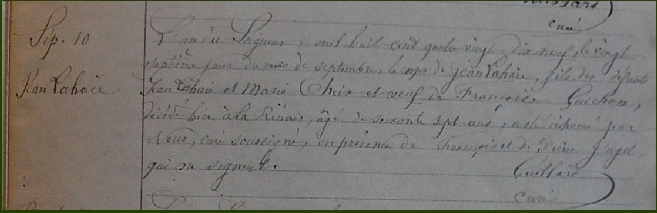 curé
Sép. 10
L'an du Seigneur, mil huit cent quatre vingt dix neuf, le vingt
septième jour du mois de septembre, le corps de Jean Lahaie, fils des défunts
Jean Lahaie
Jean Lahaie et Marie Cheix et veuf de Françoise Guichon,
décédé hier à la , âgé de soixante sept ans, a été inhumé par
Nous, curé soussigné, en présence de François et de Pierre
qui ne signent.
curé